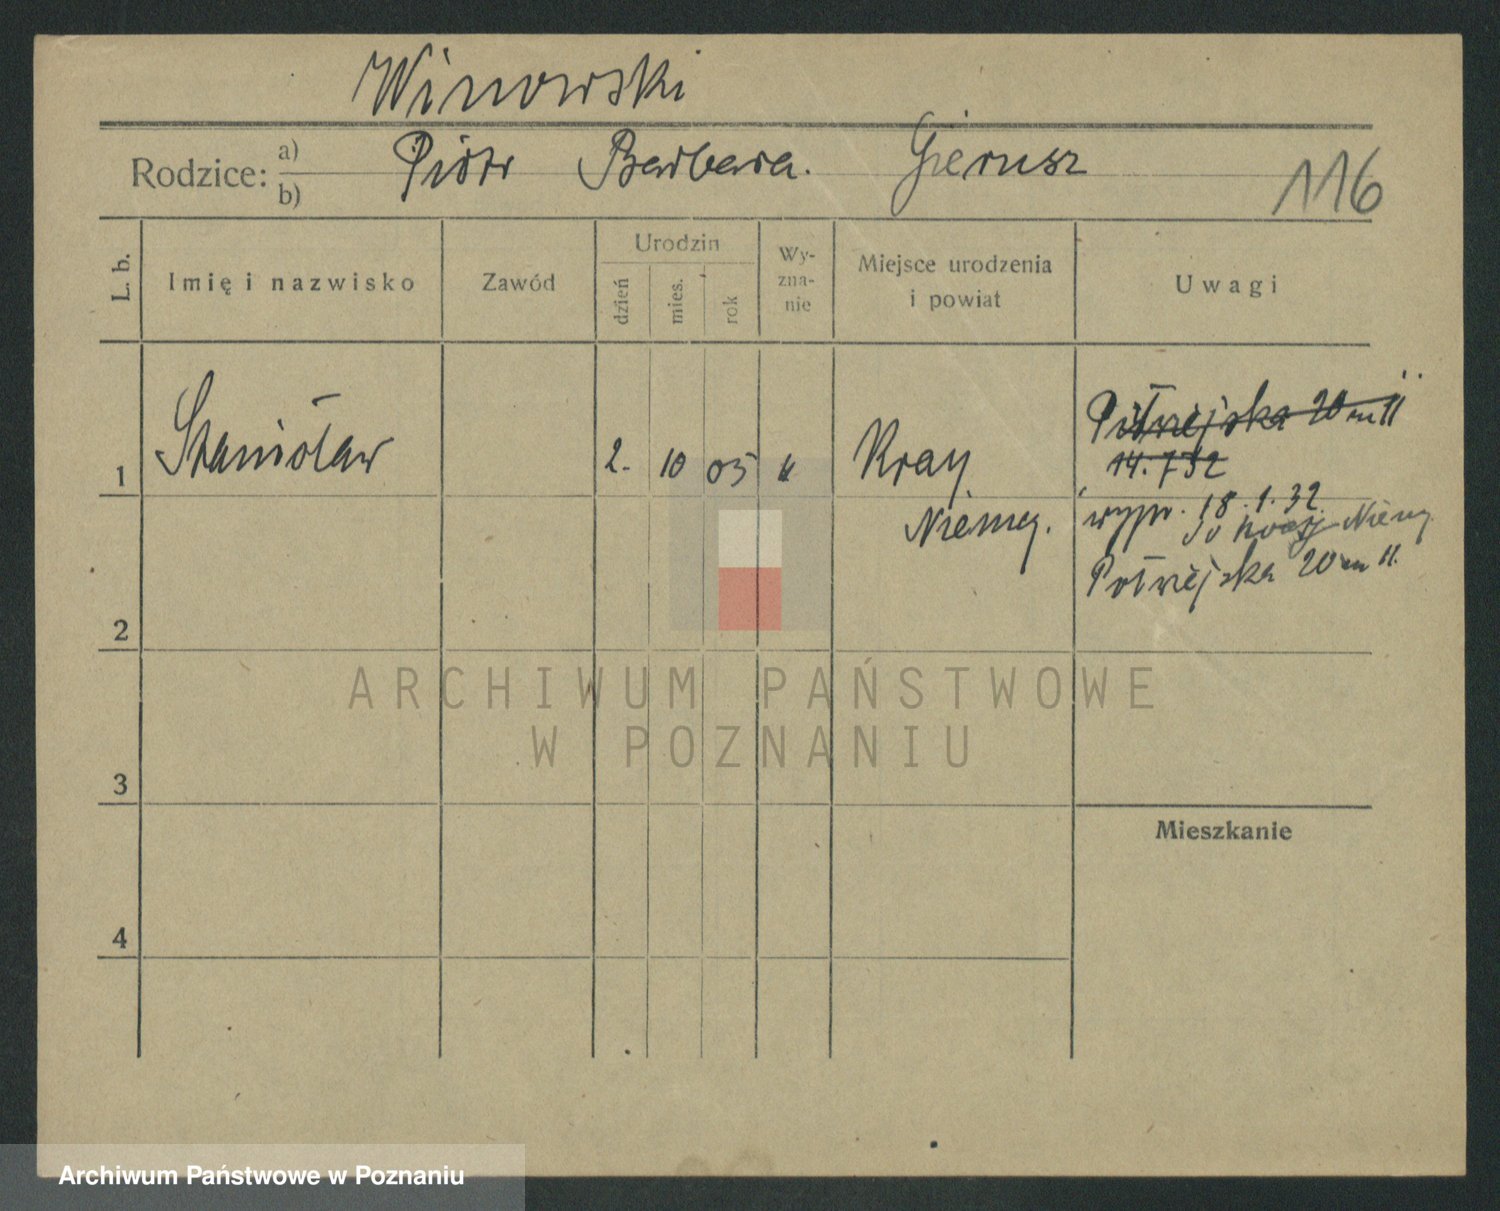 Winowski
Rodzice: a) b) Piotr Barbara. Gierusz
116
L. b.
Imię i nazwisko
Zawód
Urodzin
dzień mies. rok
Wy-
zna-
nie
Miejsce urodzenia
i powiat
Uwagi
1 Stanisław 2. 10 05 " Kray
Niemcy.
20 m 11
14.7 32
wypr. 18.1.32.
do Niemcy
Półwiejska 20 m 11.
2
3
4
Mieszkanie
ARCHIWUM PAŃSTWOWE
W POZNANIU
Archiwum Państwowe w Poznaniu